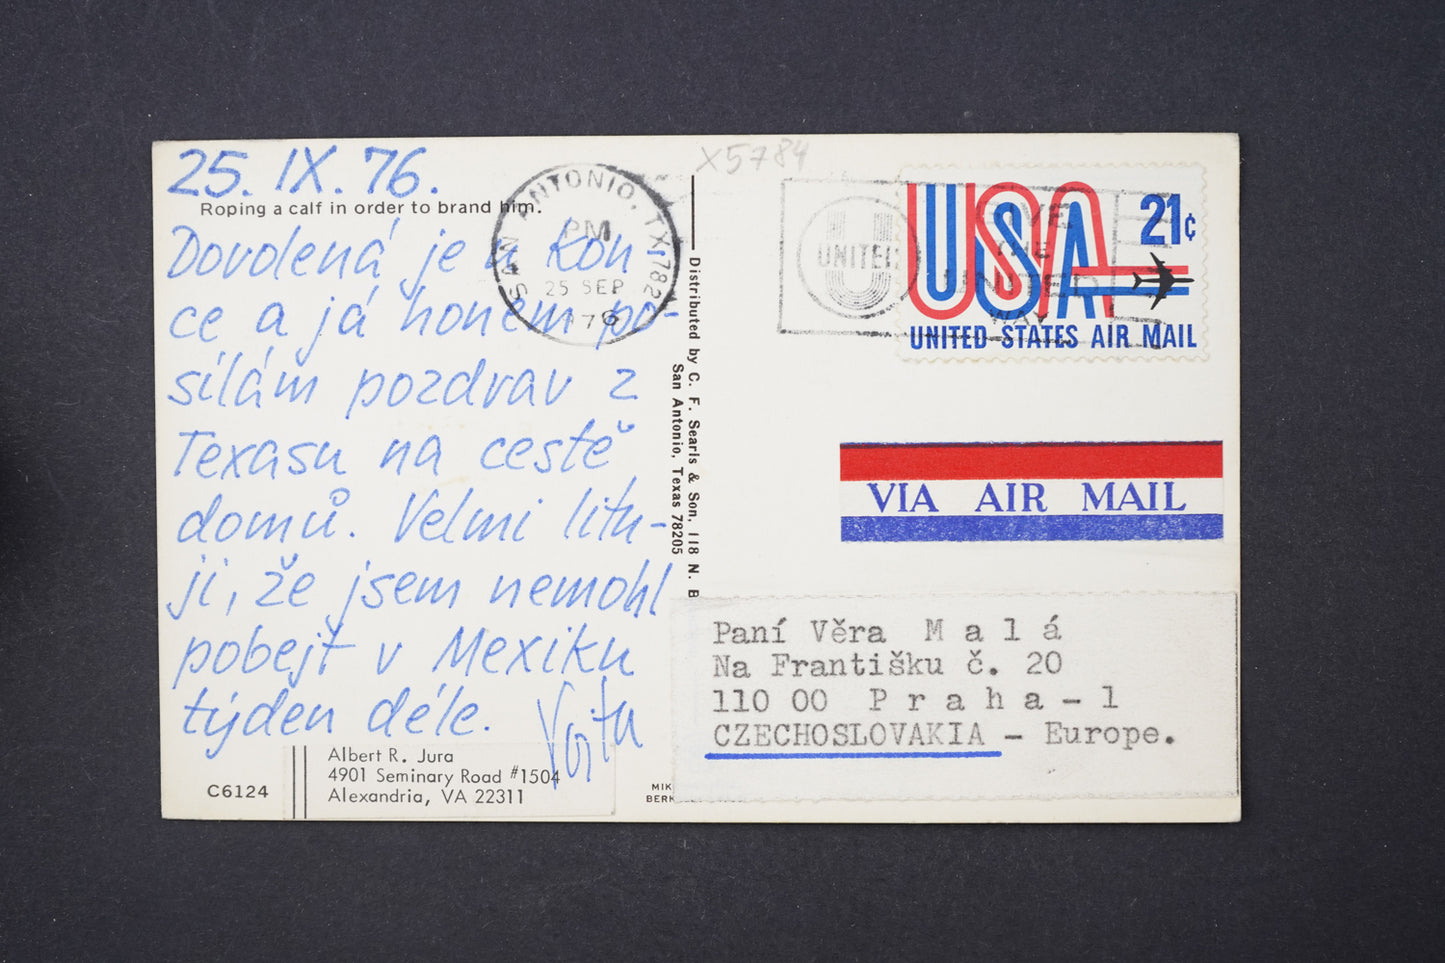 25. IX. 76.
Roping a calf in order to brand him.
Dovolená je u kon
ce a já honem po-
sílám pozdrav z
Texasu na cestě
domů. Velmi litu-
ji, že jsem nemohl
pobejt v Mexiku
týden déle. Vojta
C6124
Albert R. Jura
4901 Seminary Road #1504
Alexandria, VA 22311
SAN ANTONIO, TX 782
PM
25 SEP
1976
Distributed by C. F. Searls & Son, 118 N. B
San Antonio, Texas 78205
MIK
BERK
X5784
UNITED
GIVE
THE
UNITED
WAY
USA 21¢
UNITED STATES AIR MAIL
VIA AIR MAIL
Paní Věra M a l á
Na Františku č. 20
110 00 P r a h a - 1
CZECHOSLOVAKIA - Europe.